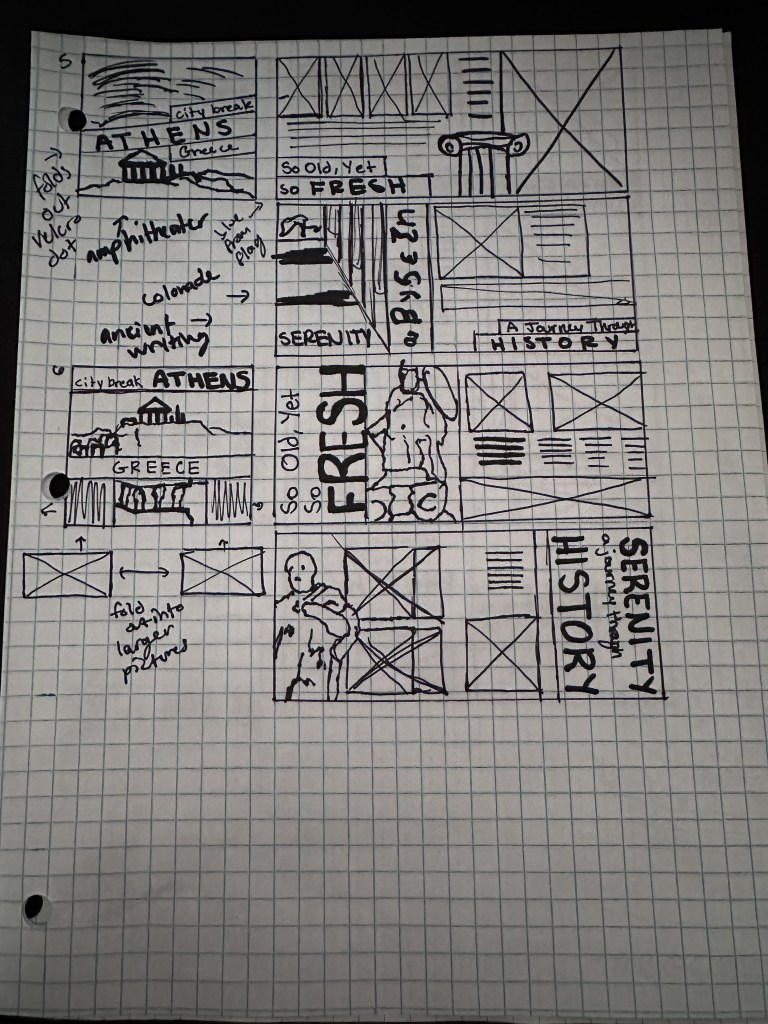 5
city break
ATHENS
Greece
folds
out
velcro
dot
amphitheater
colonade
ancient
writing
So Old, Yet
So FRESH
Line
from
flag
SERENITY
A Journey Through
HISTORY
6
city break ATHENS
GREECE
fold
out into
larger
pictures
So Old, Yet
So
FRESH
SERENITY
a journey through
HISTORY